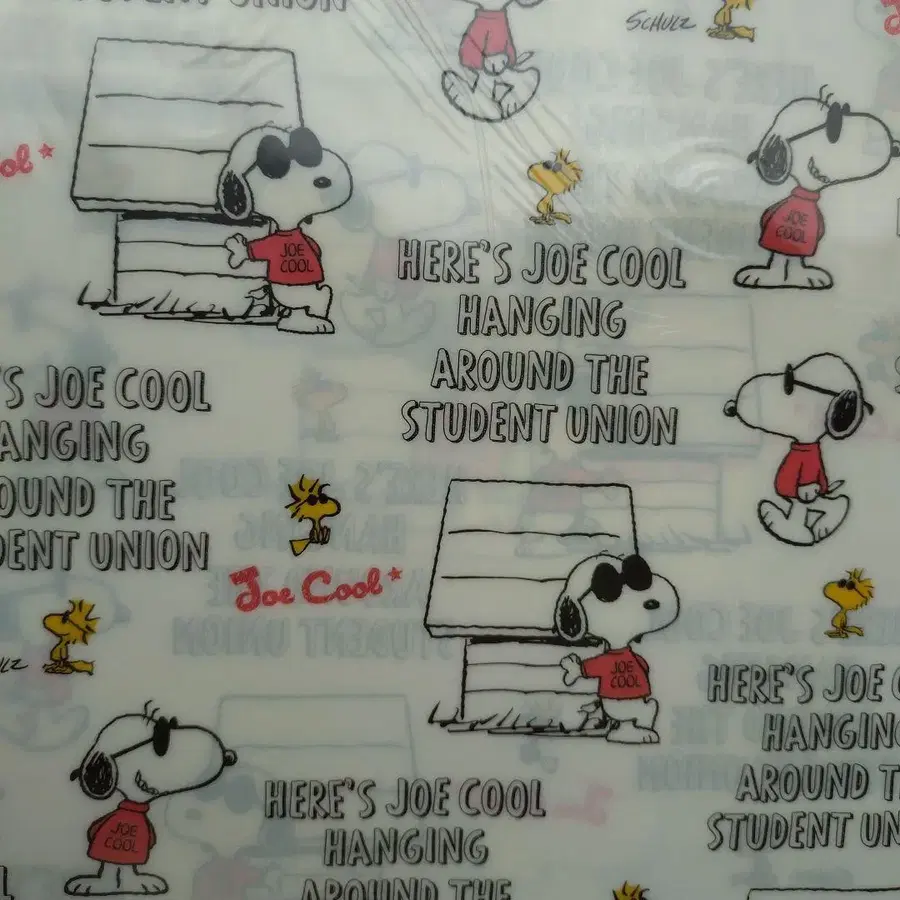 STUDENT UNION
SCHULZ
JOE
COOL
JOE
COOL
HERE'S JOE COOL
HANGING
AROUND THE
STUDENT UNION
'S JOE COOL
ANGING
OUND THE
DENT UNION
Joe Cool
JOE
COOL
HERE'S JOE
HANGING
AROUND T
STUDENT UN
JOE
COOL
HERE'S JOE COOL
HANGING
AROUND THE